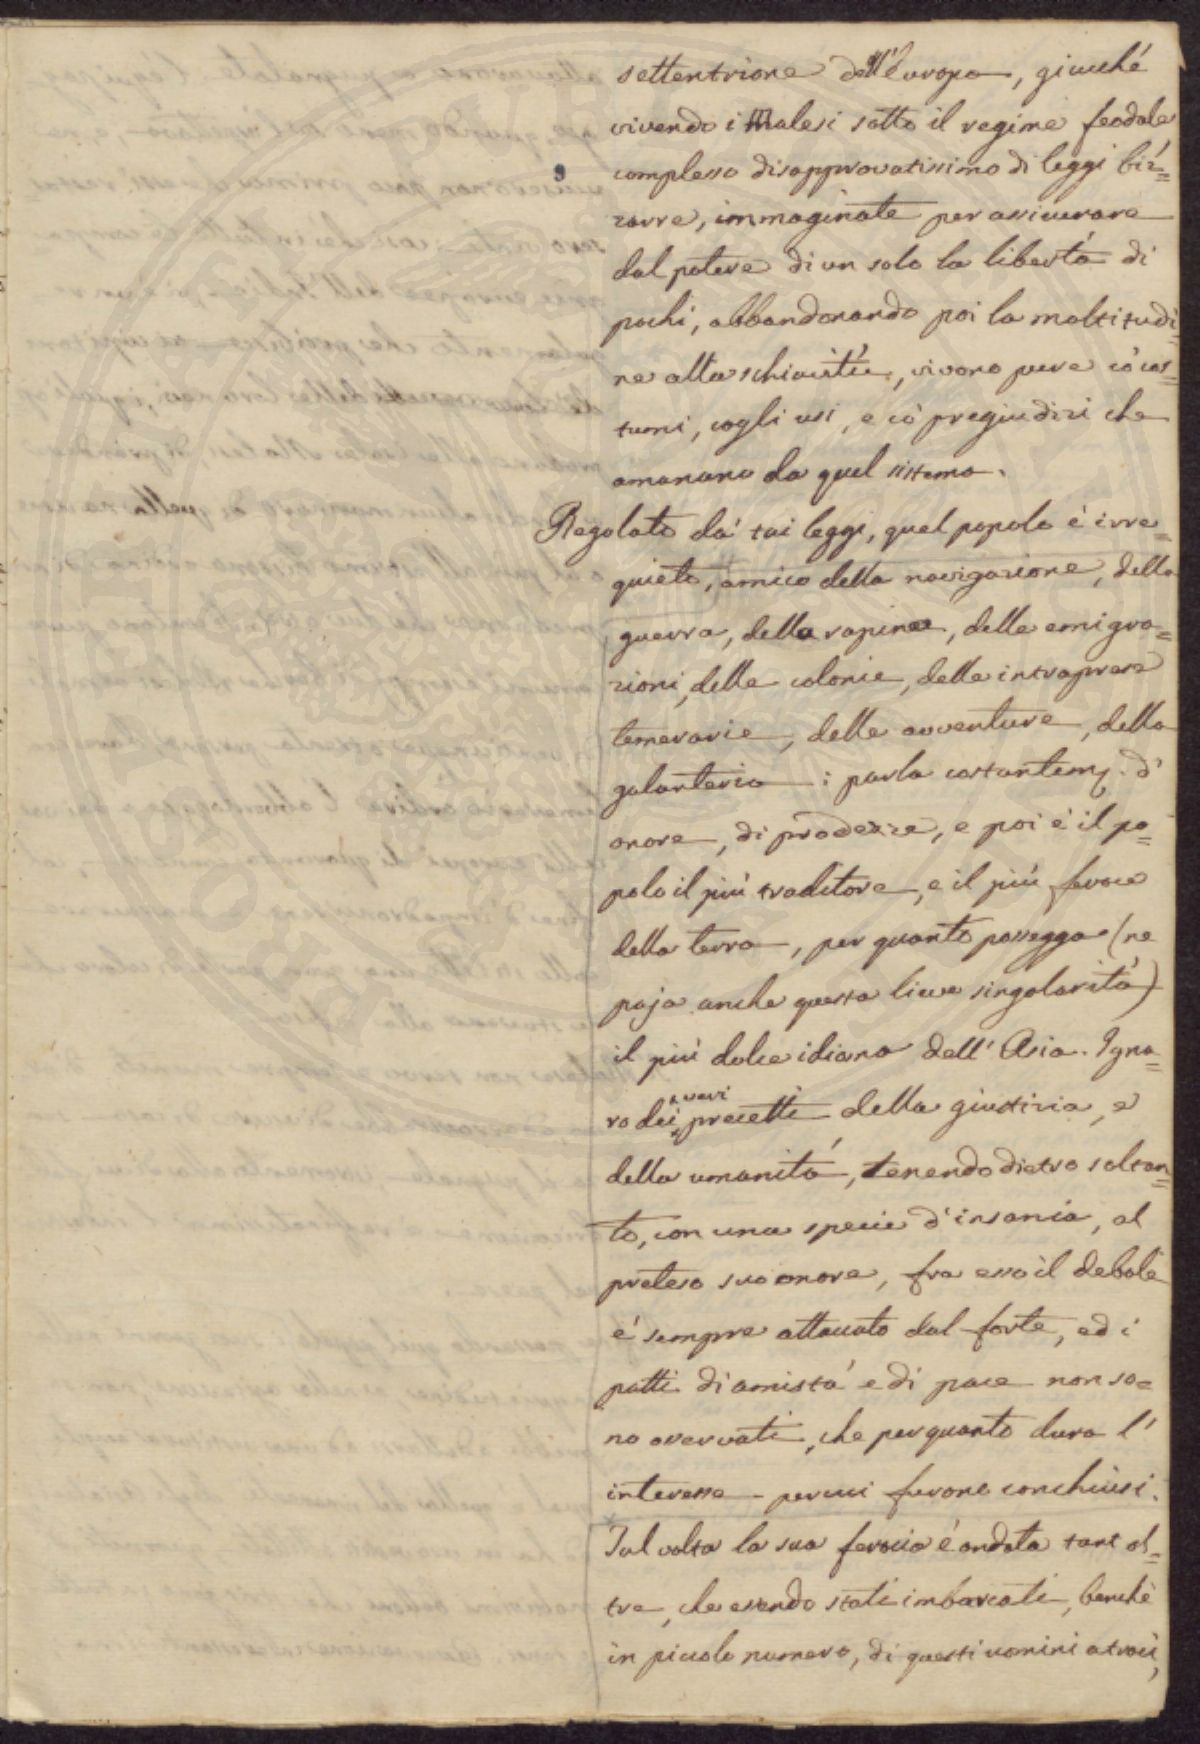 settentrione dell'Europa, giacché
vivendo i Malesi sotto il regime feodale
complesso disapprovatissimo di leggi biz=
zarre, immaginate per assicurare
dal potere di un solo la libertá di
pochi, abbandonando poi la moltitudi=
ne alla schiavitú, vivono pure co' cos=
tumi, cogli usi, e co' pregiudizi che
emanano da quel sistema.
Regolato da' tai leggi, quel popolo é irre=
quieto, amico della navigazione, della
guerra, della rapina, delle emigra=
zioni, delle colonie, delle intraprese
temerarie, delle avventure, della
galanteria: parla costantem. d'
onore, di prodezze, e poi é il po=
polo il piú traditore, e il piú feroce
della terra, per quanto possegga (ne
paja anche questa lieve singolaritá)
il piú dolce idioma dell'Asia. Igna=
ro dei veri precetti della giustizia, e
della umanitá, tenendo dietro soltan=
to, con una specie d'insania, al
preteso suo onore, fra esso il debole
é sempre attaccato dal forte, ed i
patti di amistá e di pace non so=
no osservati, che per quanto dura l'
interesse per cui furono conchiusi.
Tal volta la sua ferocia é andata tant ol=
tre, che essendo stati imbarcati, benché
in piccolo numero, di questi uomini atroci,